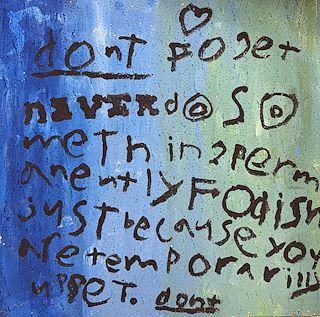 dont foget
nEVER do SO
meThing perm
anently FOolish
just because you
are temporarilly
upset. dont